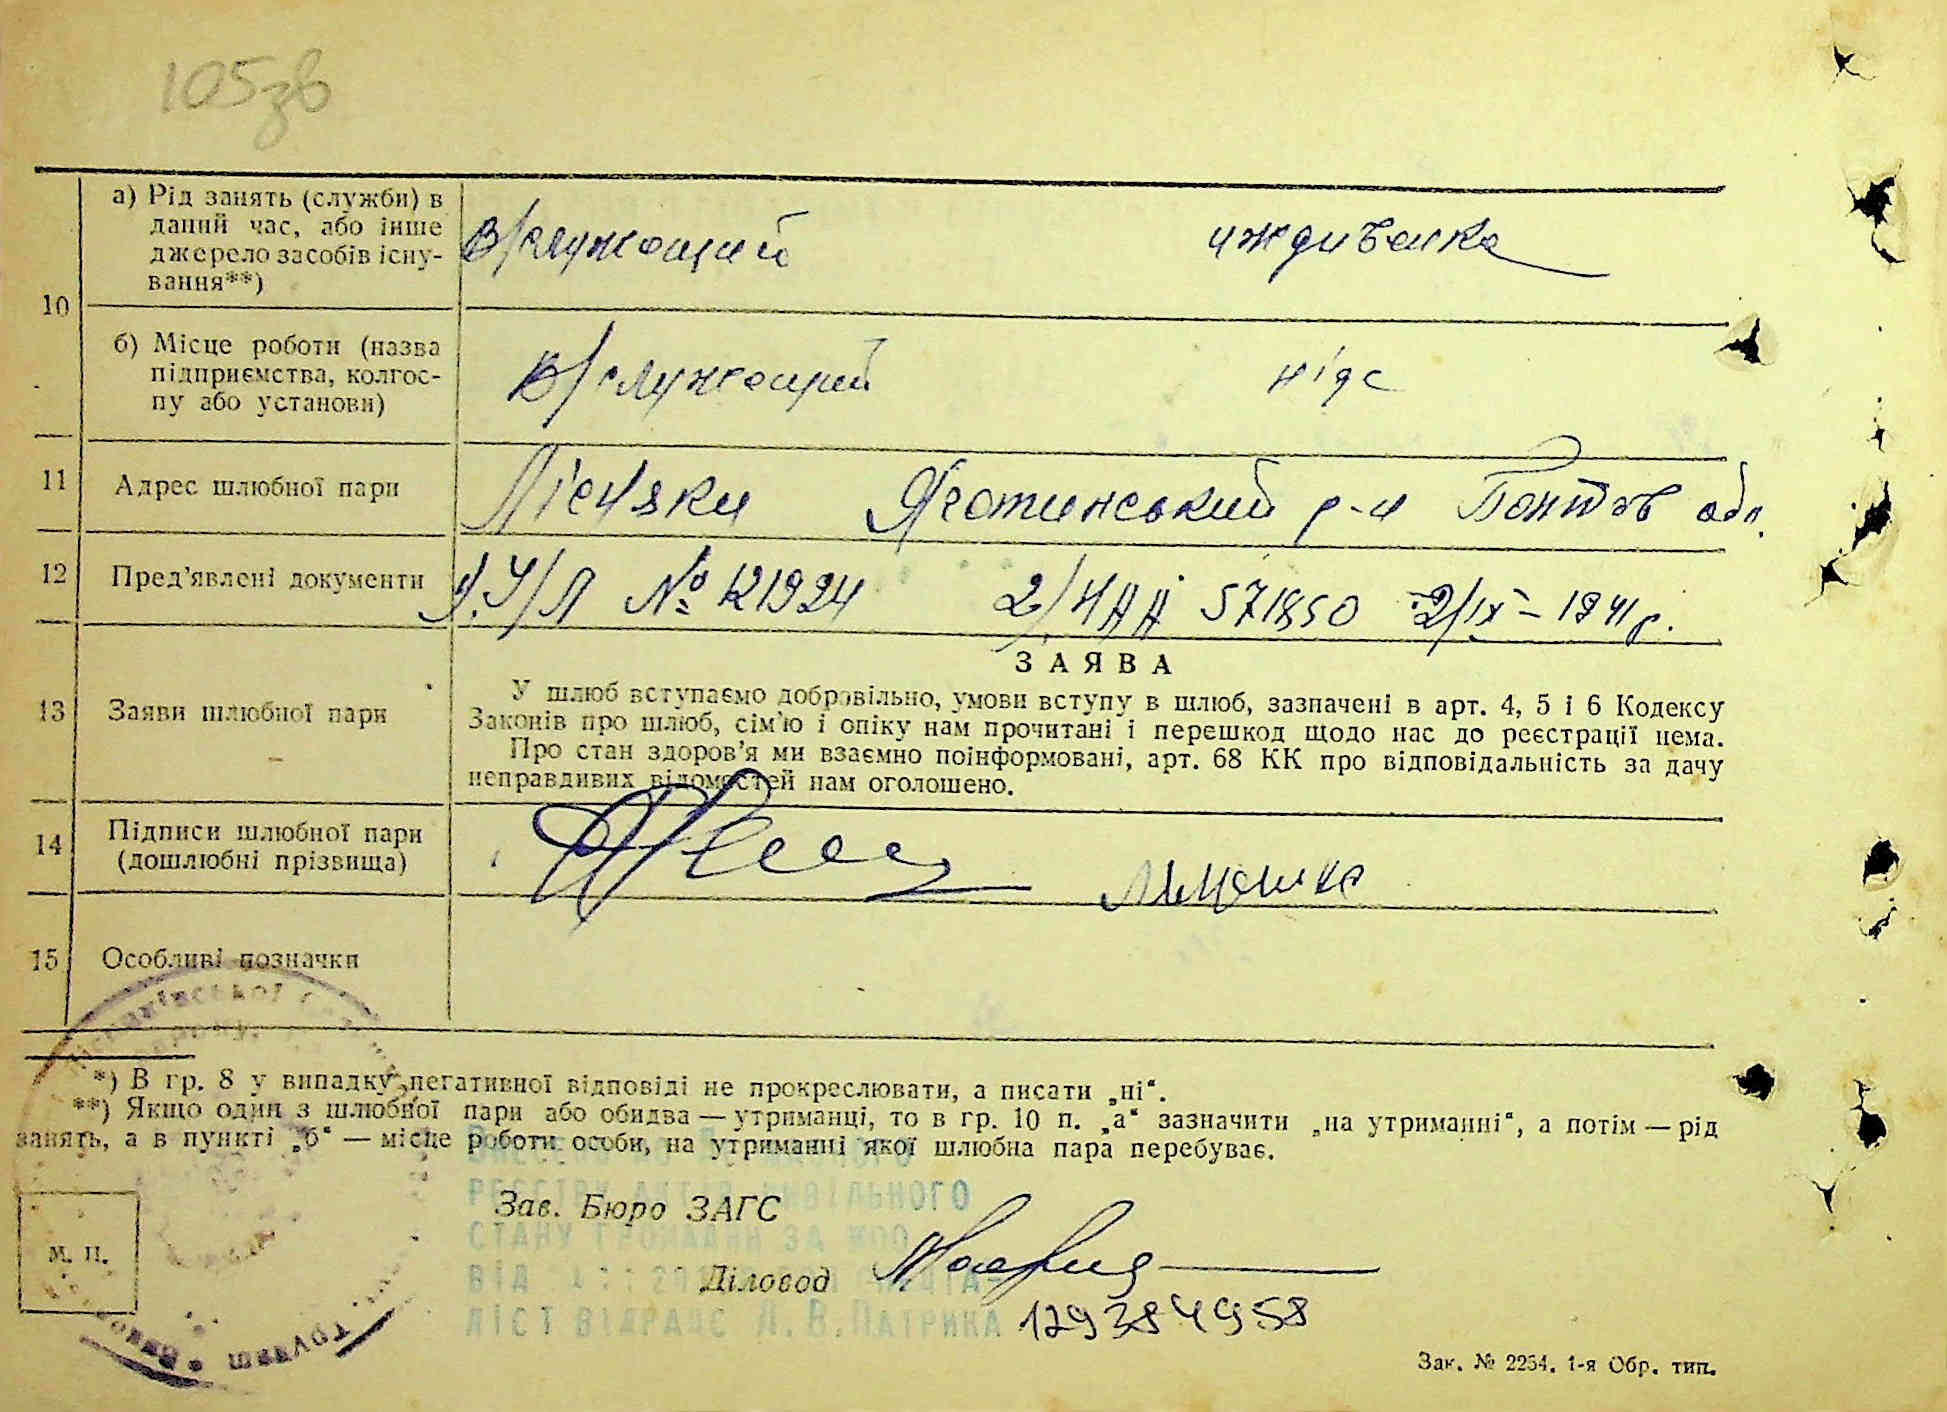 105зв
10
а) Рід занять (служби) в
даний час, або інше
джерело засобів існу-
вання**)
В/служащий
иждивенка
б) Місце роботи (назва
підприємства, колгос-
пу або установи)
В/служащий
11
Адрес шлюбної пари
Яготинський р-н Полтав обл.
12
Пред’явлені документи
У/Л № 121924
571850 2/IX – 1941 р.
13
Заяви шлюбної пари
ЗАЯВА
У шлюб вступаємо добровільно, умови вступу в шлюб, зазначені в арт. 4, 5 і 6 Кодексу
Законів про шлюб, сім’ю і опіку нам прочитані і перешкод щодо нас до реєстрації нема.
Про стан здоров’я ми взаємно поінформовані, арт. 68 КК про відповідальність за дачу
неправдивих відомостей нам оголошено.
14
Підписи шлюбної пари
(дошлюбні прізвища)
15
Особливі позначки
*) В гр. 8 у випадку негативної відповіді не прокреслювати, а писати „ні“.
**) Якщо один з шлюбної пари або обидва — утриманці, то в гр. 10 п. „а“ зазначити „на утриманні“, а потім — рід
занять, а в пункті „б“ — місце роботи особи, на утриманні якої шлюбна пара перебуває.
РЕЄСТРУ АКТІВ ЦИВІЛЬНОГО
СТАНУ ГРОМАДЯН ЗА
ВІД
ЛІСТ ВІДРАЦС Л.В.ПАТРИКА
Зав. Бюро ЗАГС
Діловод
129384958
М. П.
Зак. № 2254. 1-я Обр. тип.